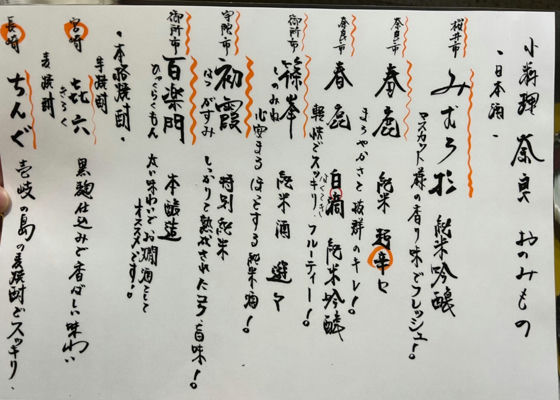 小料理 奈良 おのみもの
・日本酒・
桜井市 みむろ杉 純米吟醸
マスカット様の香り味でフレッシュ!
奈良市 春鹿 純米 超辛口
まろやかさと抜群のキレ!
奈良市 春鹿 白滴 純米吟醸
はくてき
軽快でスッキリフルーティー!
御所市 篠峯 純米酒 遊々
しのみね
心安まるほっとする純米酒!
宇陀市 初霞 特別純米
はつがすみ
しっかりと熟成されたコク、旨味!
御所市 百楽門 本醸造
ひゃくらくもん
太い味わいでお燗酒として
オススメです!
・本格焼酎・
芋焼酎
宮崎 㐂六
きろく
黒麹仕込みで香ばしい味わい
麦焼酎
長崎 ちんぐ 壱岐の島の麦焼酎でスッキリ.